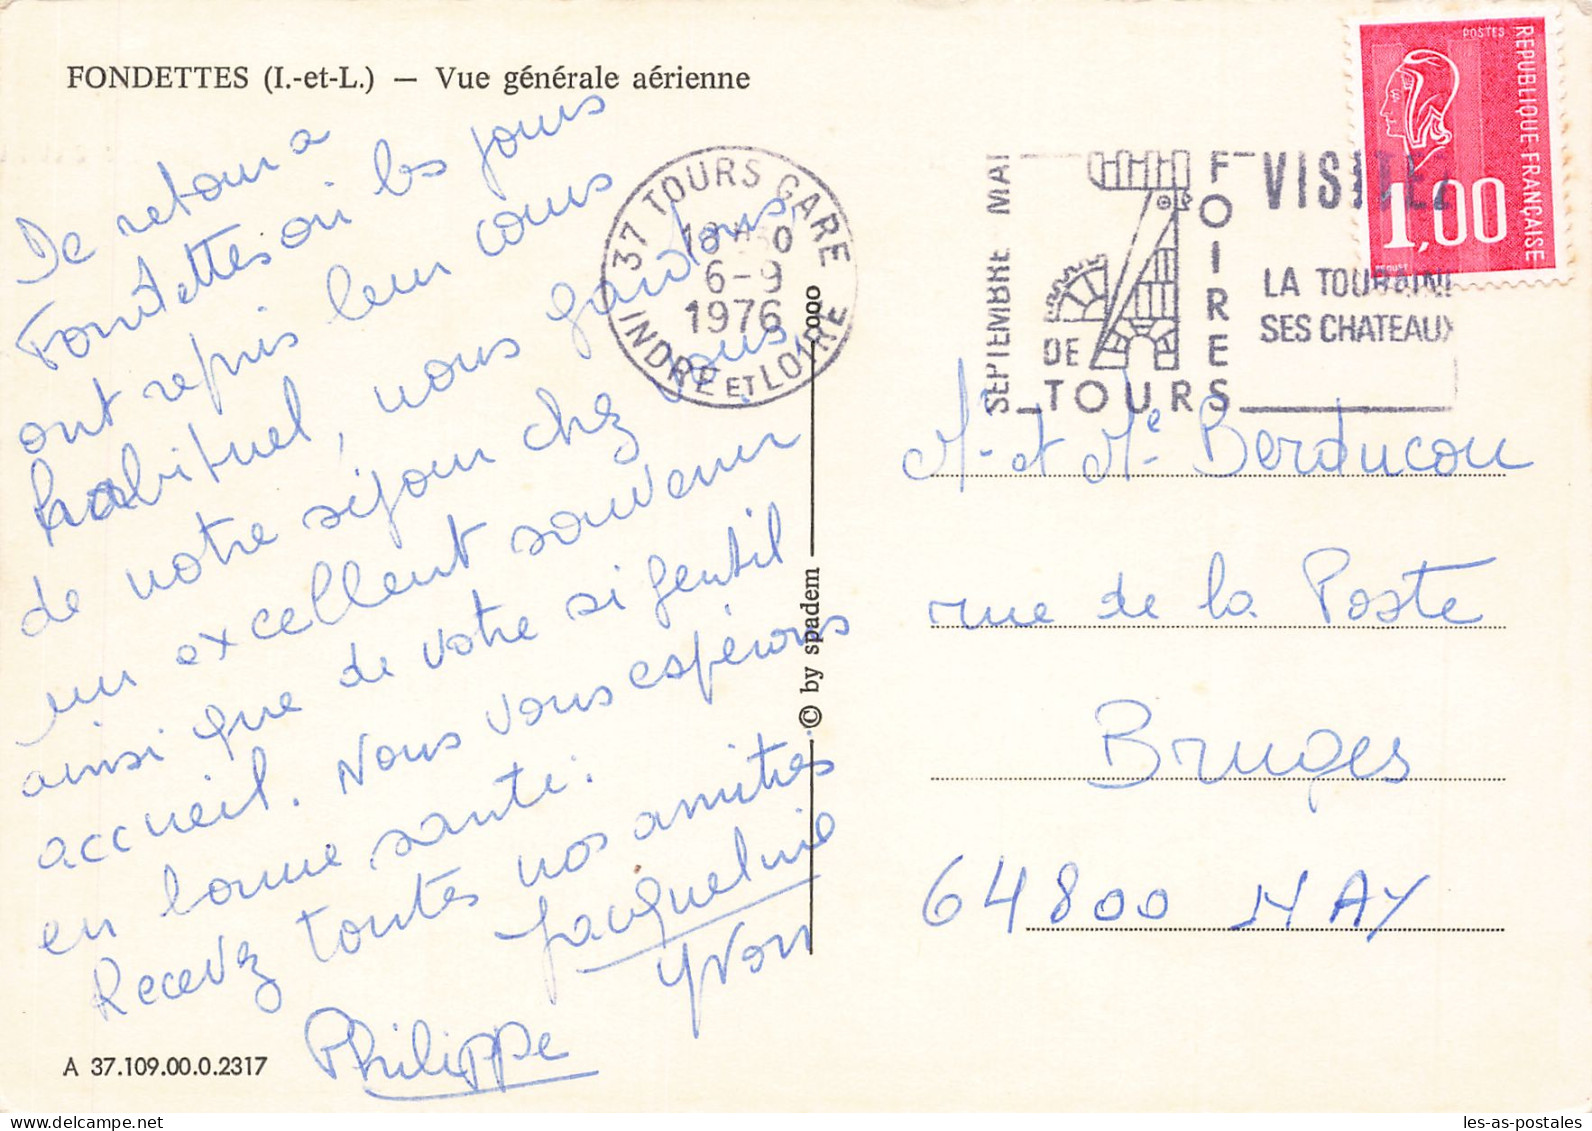 FONDETTES (I.-et-L.) — Vue générale aérienne
De retour a
Fondettes où les jours
ont repris leur cours
habituel, nous gardons
de notre séjour chez vous
un excellent souvenir
ainsi que de votre si gentil
accueil. Nous vous espérons
en bonne santé.
Recevez toutes nos amitiés
Jacqueline
Yvon
Philippe
A 37.109.00.0.2317
© by spadem
37 TOURS GARE
18 H 30
6-9
1976
INDRE ET LOIRE
SEPTEMBRE MAI
FOIRES
DE
TOURS
VISITEZ
LA TOURAINE
SES CHATEAUX
POSTES
REPUBLIQUE FRANÇAISE
1,00
M. et Me Berducou
rue de la Poste
Bruges
64800 NAY
les-as-postales
www.delcampe.net